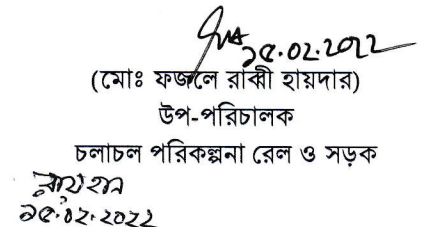 ১৫.০২.২০২২
(মোঃ ফজলে রাব্বী হায়দার)
উপ-পরিচালক
চলাচল পরিকল্পনা রেল ও সড়ক
১৫.০২.২০২২